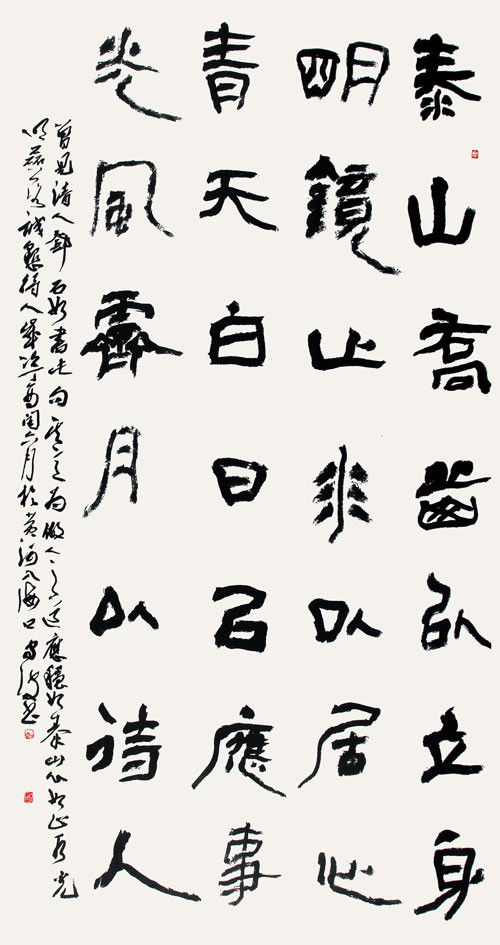 泰山喬岳以立身
明鏡止水以居心
青天白日以應事
光風霽月以待人
曾見清人鄧石如書此句意之为做人之道應穩如泰山心如止水光
明磊落誠懇待人歲次丁酉閏六月於黃河入海口